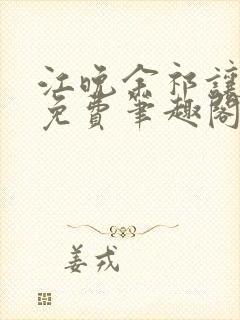 江晚余祁让
免费笔趣阁
姜戎